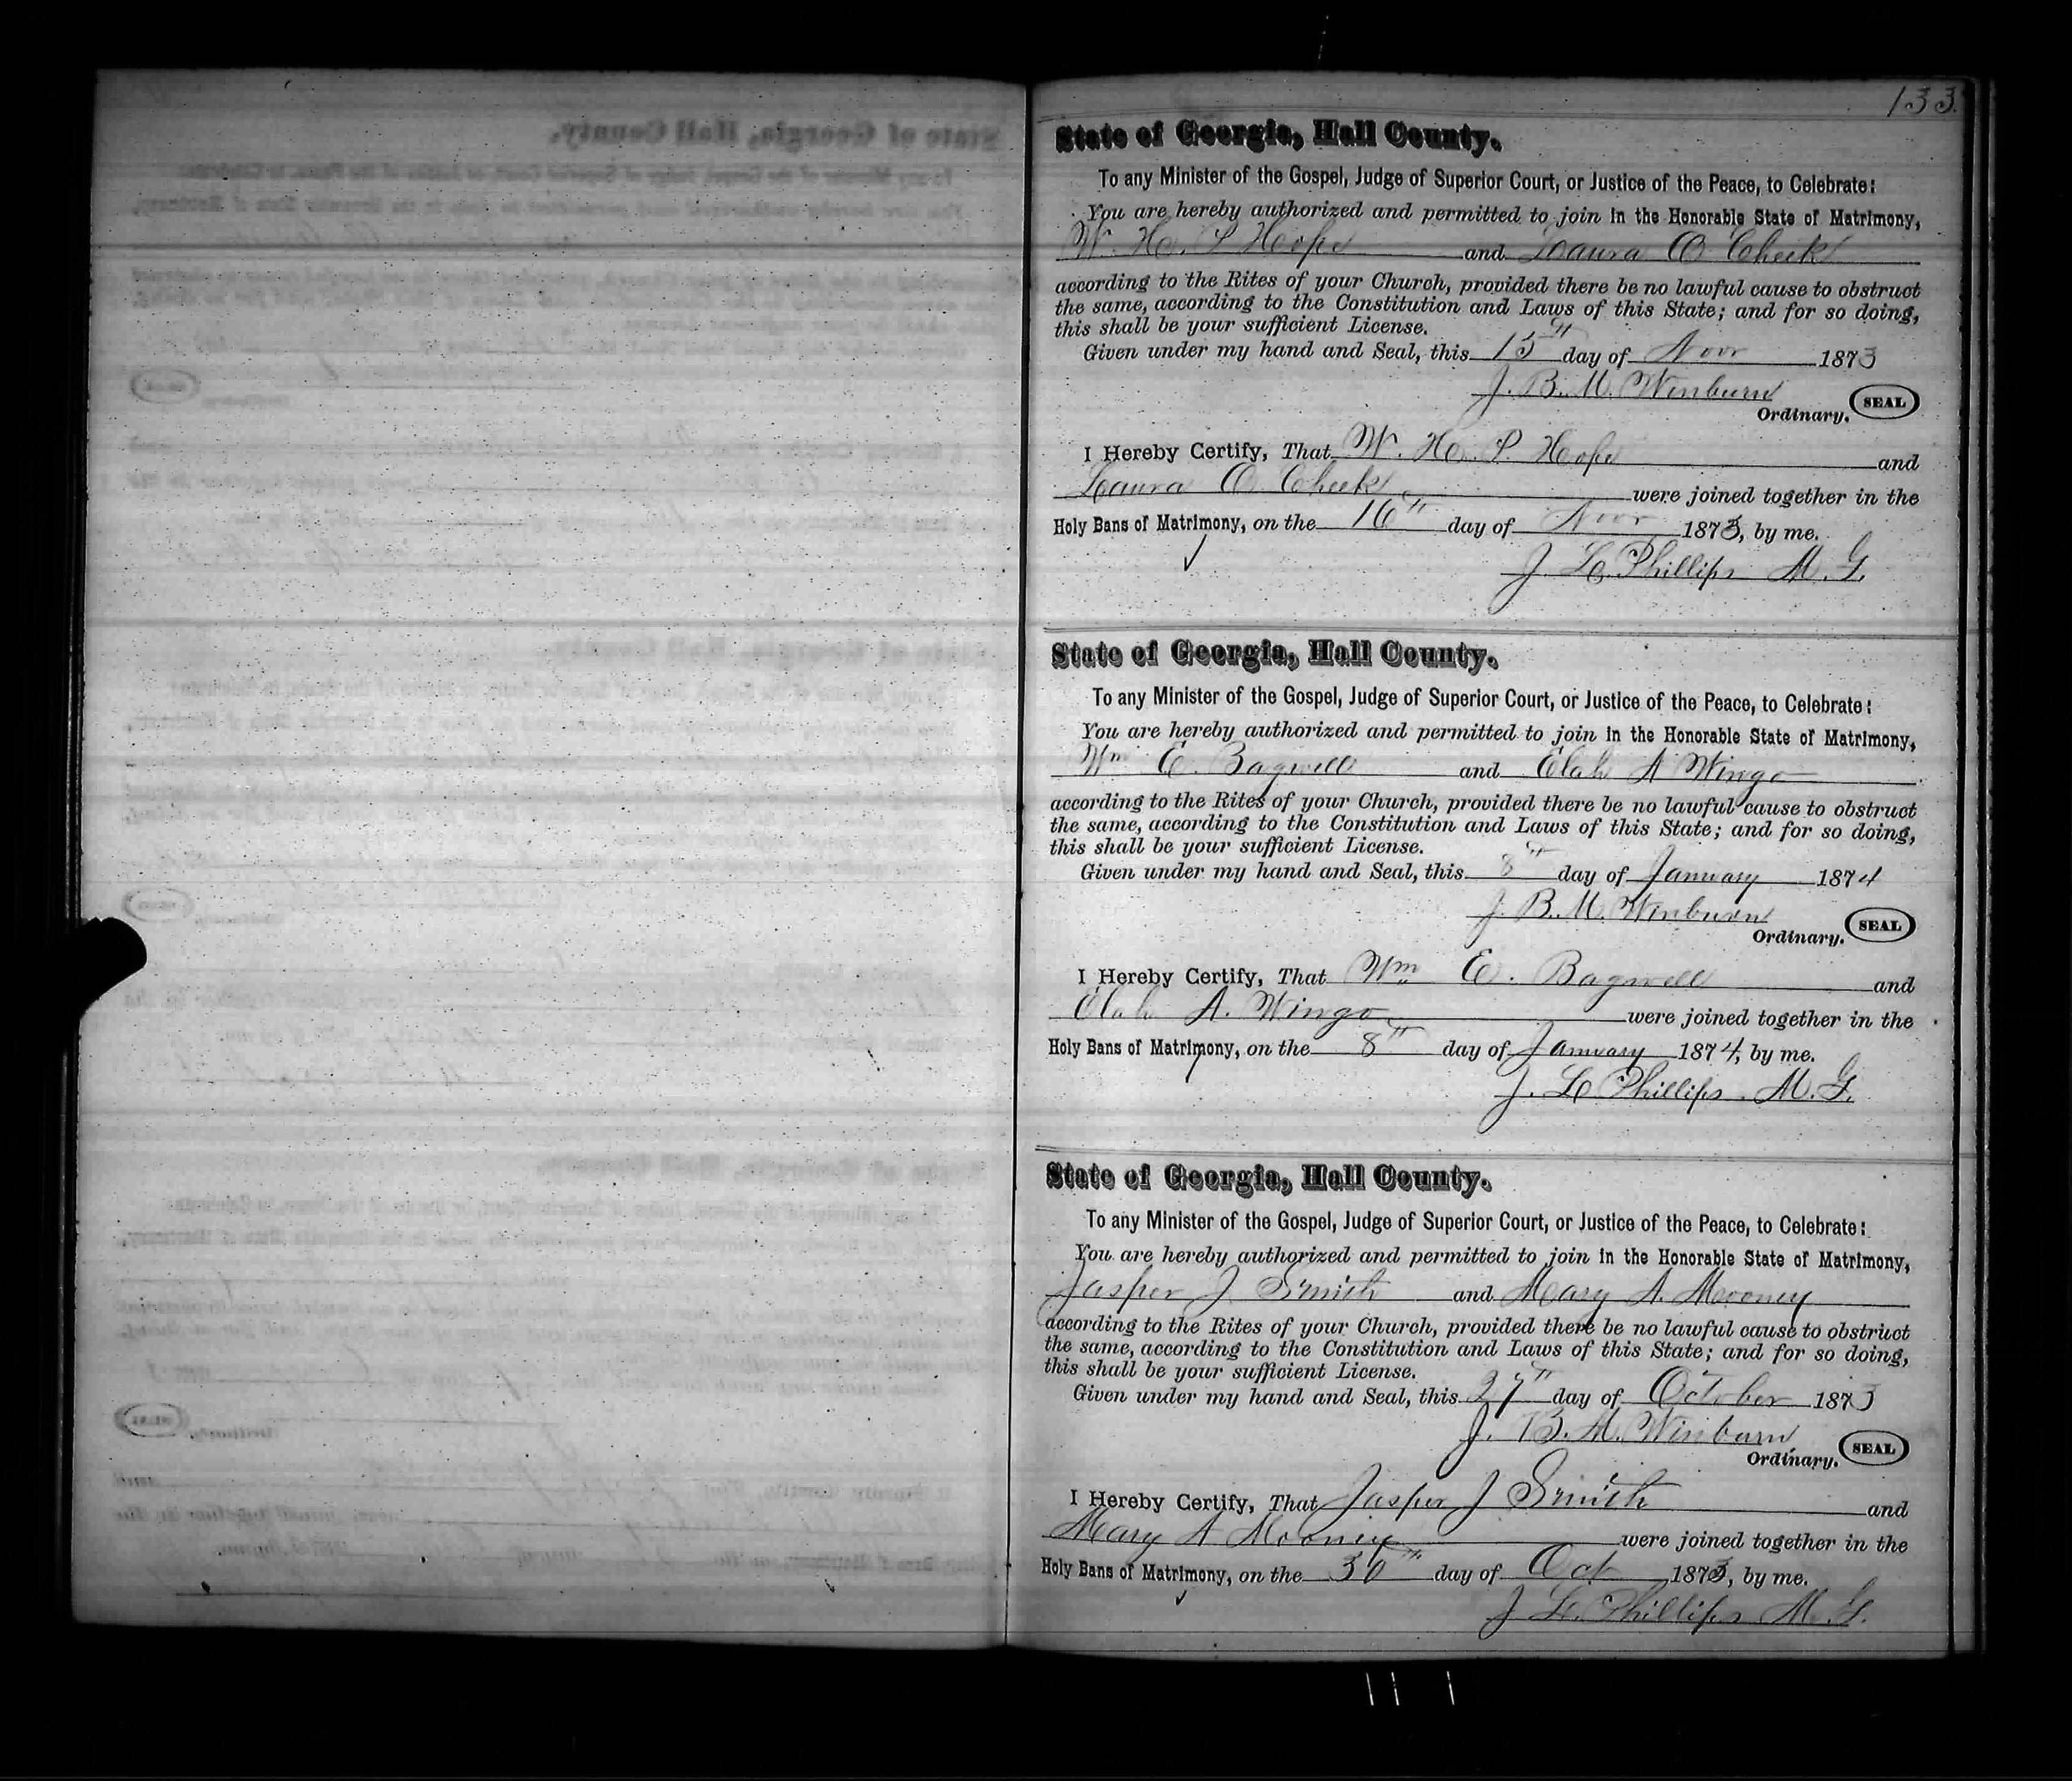 133.
State of Georgia, Hall County.
To any Minister of the Gospel, Judge of Superior Court, or Justice of the Peace, to Celebrate:
You are hereby authorized and permitted to join in the Honorable State of Matrimony,
W. H. P Hope and Laura O Cheek
according to the Rites of your Church, provided there be no lawful cause to obstruct
the same, according to the Constitution and Laws of this State; and for so doing,
this shall be your sufficient License.
Given under my hand and Seal, this 15th day of Novr 1873
J. B. M. Winburn
Ordinary. SEAL
I Hereby Certify, That W. H. P Hope and
Laura O Cheek were joined together in the
Holy Bans of Matrimony, on the 16th day of Novr 1873, by me.
J. L. Phillips M. G.
State of Georgia, Hall County.
To any Minister of the Gospel, Judge of Superior Court, or Justice of the Peace, to Celebrate:
You are hereby authorized and permitted to join in the Honorable State of Matrimony,
Wm E. Bagwell and Elah A Wingo
according to the Rites of your Church, provided there be no lawful cause to obstruct
the same, according to the Constitution and Laws of this State; and for so doing,
this shall be your sufficient License.
Given under my hand and Seal, this 8th day of January 1874
J. B. M. Winburn
Ordinary. SEAL
I Hereby Certify, That Wm E. Bagwell and
Elah A. Wingo were joined together in the
Holy Bans of Matrimony, on the 8th day of January 1874, by me.
J. L Phillips. M. G.
State of Georgia, Hall County.
To any Minister of the Gospel, Judge of Superior Court, or Justice of the Peace, to Celebrate:
You are hereby authorized and permitted to join in the Honorable State of Matrimony,
Jasper J Smith and Mary A. Mooney
according to the Rites of your Church, provided there be no lawful cause to obstruct
the same, according to the Constitution and Laws of this State; and for so doing,
this shall be your sufficient License.
Given under my hand and Seal, this 27th day of October 1873
J. B. M. Winburn
Ordinary. SEAL
I Hereby Certify, That Jasper J Smith and
Mary A Mooney were joined together in the
Holy Bans of Matrimony, on the 30th day of Oct 1873, by me.
J L. Phillips M. G.